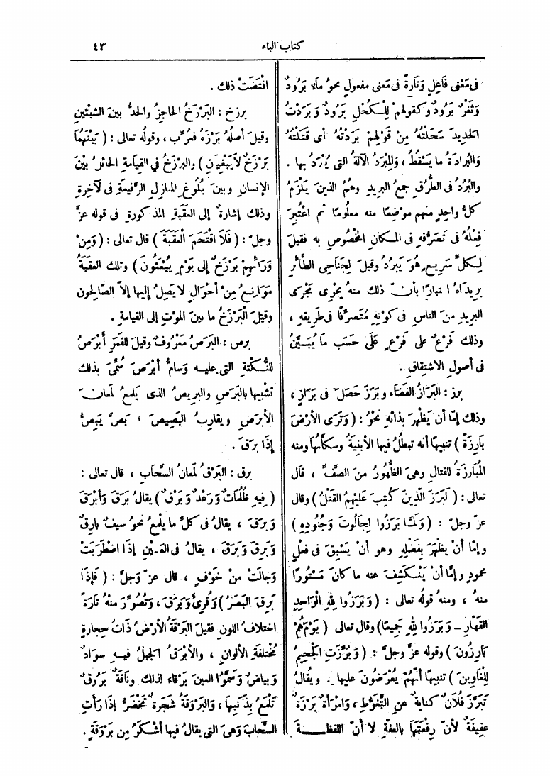 كتاب الباء
٤٣
فى مَعْنى فَاعِلٍ وَتَارةً فى مَعنى مفعولٍ نحوُ ماءٍ بَرُودٌ
وثَغْرٌ بَرُودٌ وكقولهم لِلْكُحْلِ بَرُودٌ وَبَرَدْتُ
الحديدَ سَحَلْتُهُ مِنْ قَوْلِهِمْ بَرَدْتُهُ أى قَتَلْتُهُ
والبُرَادَةُ ما يَسْقُطُ ، وَالمِبْرَدُ الآلةُ التى يُبْرَدُ بها .
والبُرُدُ فى الطُّرُقِ جمعُ البريدِ وهُمُ الذين يَلْزَمُ
كلُّ واحِدٍ منهم مَوْضِعًا منه معلُومًا ثم اعْتُبِرَ
فِعْلُهُ فى تَصَرُّفِهِ فى المكان المخْصُوصِ به فقيلَ
لِكلِّ سريعٍ هُوَ يَبْرُدُ وقيلَ لِجَنَاحَىِ الطَّائرِ
بَرِيدَاهُ اعتِبارًا بأن ذلك منه يَجْرِى مَجْرَى
البريدِ من الناس فى كونِهِ مُتَصَرِّفًا فى طريقِهِ ،
وذلك فَرْعٌ على فَرْعٍ عَلَى حَسَبِ ما يُبَيَّنُ
فى أصولِ الاشتِقاقِ .
برز : البَرَازُ الفَضَاءُ وبَرَزَ حَصَلَ فى بَرَازٍ ،
وذلك إمَّا أن يَظْهَرَ بذاتِه نحوُ : ( وَتَرَى الأرْضَ
بارِزَةً ) تنبيهاً أنه تبطُلُ فيها الأبنِيةُ وسُكَّانُها ومنه
المُبارَزَةُ للقتالِ وهى الظُّهُورُ من الصَّفِّ ، قال
تعالى : ( لَبَرَزَ الَّذِينَ كُتِبَ عَلَيْهِمُ القَتْلُ ) وقال
عزّ وجلَّ : ( وَلَمَّا بَرَزُوا لِجالُوتَ وَجُنُودِهِ )
وإمَّا أنْ يظْهرَ بِفَضْلِهِ وهو أن يَسْبِقَ فى فعْلٍ
محمودٍ وإمَّا أنْ يَنْكَشِفَ عنه ما كانَ مَسْتُورًا
منه ، ومنه قولُه تعالى : ( وَبَرَزُوا لِلهِ الْوَاحِدِ
القَهَّارِ - وَبَرَزُوا لِلهِ جَمِيعًا ) وقال تعالى ( يَوْمَ هُمْ
بَارِزُونَ ) وقوله عزّ وجلَّ : ( وَبُرِّزَتِ الْجَحِيمُ
لِلْغَاوِينَ ) تنبيهاً أنَّهُمْ يُعْرَضُونَ عليها . ويقالُ
تَبَرَّزَ فُلَانٌ كنايةً عن التَّغَوُّطِ ، وَامْرَأةٌ بَرْزَةٌ
عفيفةٌ لأن رِفْعَتَها بالعِفَّةِ لا أنّ اللفظةَ
اقْتَضَتْ ذلك .
برزخ : البَرْزَخُ الحاجِزُ والحدُّ بينَ الشَّيئيْنِ
وقيلَ أصلُهُ بَرْزَهْ فعُرِّبَ ، وقولُه تعالى : ( بَيْنَهُما
بَرْزَخٌ لَا يَبْغِيَانِ ) والبرْزَخُ فى القيامةِ الحائلُ بيْنَ
الإنسانِ وبينَ بُلُوغِ المنازِلِ الرَّفيعةِ فى الآخِرةِ
وذلك إشارةٌ إلى العقَبةِ المذكورةِ فى قوله عزّ
وجلَّ : ( فَلَا اقْتَحَمَ الْعَقَبَةَ ) قال تعالى : ( وَمِنْ
وَرَائِهِمْ بَرْزَخٌ إلى يَوْمِ يُبْعَثُونَ ) وتلك العقبةُ
مَوانِعُ مِنْ أحْوَالٍ لا يَصِلُ إليها إلاَّ الصَّالِحون
وقيلَ البَرْزَخُ ما بينَ الموْتِ إلى القيامةِ .
برص : البَرَصُ مَعْرُوفٌ وقيلَ للقَمَرِ أبْرَصُ
للنُّكْتَةِ التى عليهِ وسَامُّ أبْرَصَ سُمِّىَ بذلك
تشبيهاً بالبَرَصِ والبريصُ الذى يَلْمَعُ لَمَعَانَ
الأبرَصِ ويقارِبُ البَصِيصَ ، بَصَّ يَبِصُّ
إذَا بَرَقَ .
برق : البَرْقُ لَمَعَانُ السَّحابِ ، قال تعالى :
( فِيهِ ظُلُمَاتٌ وَرَعْدٌ وَبَرْقٌ ) يقالُ بَرَقَ وَأبْرَقَ
وبَرَقَ ، يقالُ فى كلِّ ما يلْمعُ نحوُ سيفٌ بارِقٌ
وَبَرِقَ وَبَرَقَ ، يقالُ فى العَيْنِ إذَا اضْطَرَبَتْ
وجَالَتْ مِنْ خَوْفٍ ، قال عزّ وجلَّ : ( فَإِذَا
بَرِقَ الْبَصَرُ ) وَقُرِئَ وَبَرَقَ ، وتُصُوِّرَ منهُ تارةً
اختلافُ اللونِ فقيلَ البُرْقَةُ الأرْضُ ذَاتُ حِجارةٍ
مُختلِفةِ الألوانِ ، والأبرَقُ الجَبَلُ فيهِ سوَادٌ
وبياضٌ وَسَمَّوُا العينَ بَرْقَاءَ لذلك وناقةٌ بَرُوقٌ
تلْمَعُ بذَنَبِها ، وَالبَرْوَقَةُ شجرَةٌ تَخْضَرُّ إذا رَأتِ
السَّحابَ وَهِىَ التى يقالُ فيها أشْكَرُ مِنْ بَرْوَقَةٍ .